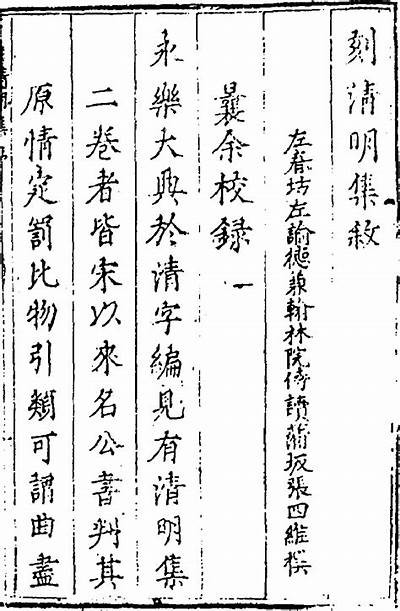 刻清明集敘
左春坊左諭德兼翰林院侍讀蒲坂張四維撰
曩余校録
永樂大典於清字編見有清明集
二卷者皆宋以來名公書判其
原情定罰比物引類可謂曲盡